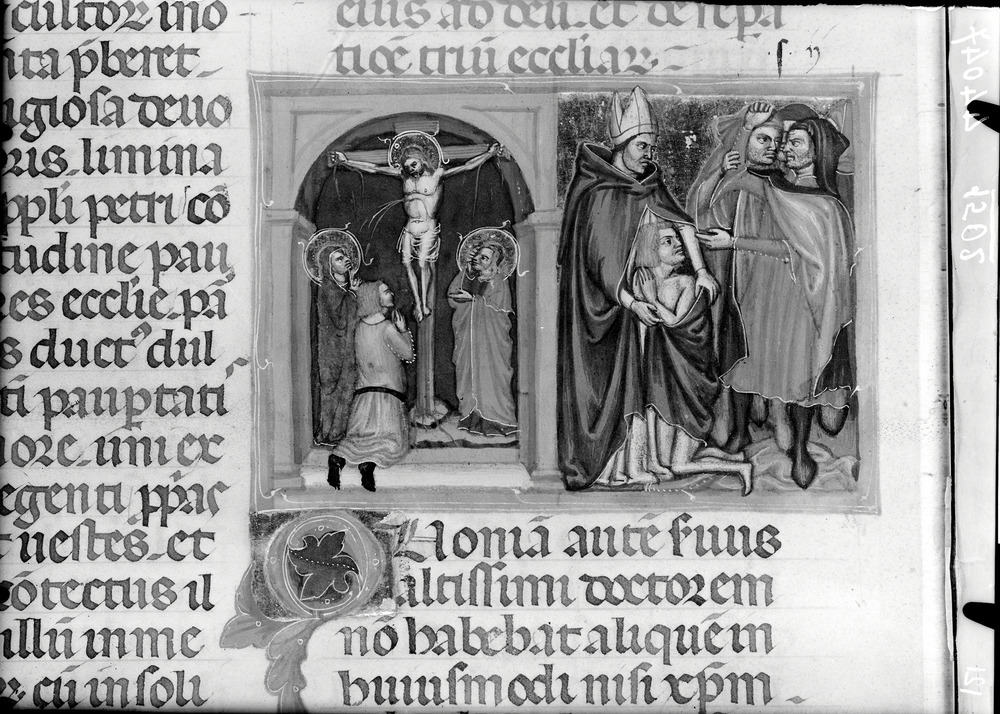 cultor ino
ita pberet
igiosa deuo
ris. limina
ppli petri cō
tudine pau
res ecclie. pā
s duct⁹ dul
ti paupertati
ore. uni ex
egenti
t uestes. et
cōtectus il
illū in me
cū in soli
eius ad deū. et de sepa
tiōe triū eccliaꝝ
f. v
loniā autē suus
altissimi doctorem
nō habebat aliquem
huiusmodi nisi xp̄m
20051
44047
121